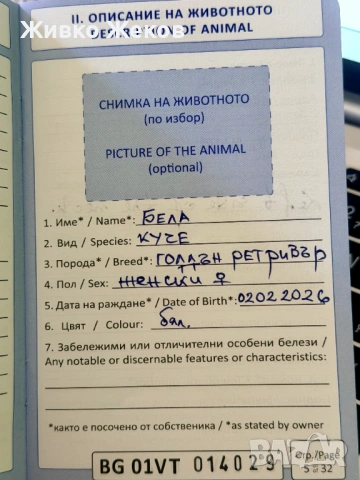 Живко Жеков
II. ОПИСАНИЕ НА ЖИВОТНОТО
DESCRIPTION OF ANIMAL
СНИМКА НА ЖИВОТНОТО
(по избор)
PICTURE OF THE ANIMAL
(optional)
1. Име* / Name*: БЕЛА
2. Вид / Species: КУЧЕ
3. Порода* / Breed*: ГОЛДЪН РЕТРИВЪР
4. Пол / Sex: ЖЕНСКИ ♀
5. Дата на раждане* / Date of Birth*: 02022026
6. Цвят / Colour: бял.
7. Забележими или отличителни особени белези /
Any notable or discernable features or characteristics:
*както е посочено от собственика / *as stated by owner
BG 01VT 014029
Стр./Page
5 от/of 32
bazar